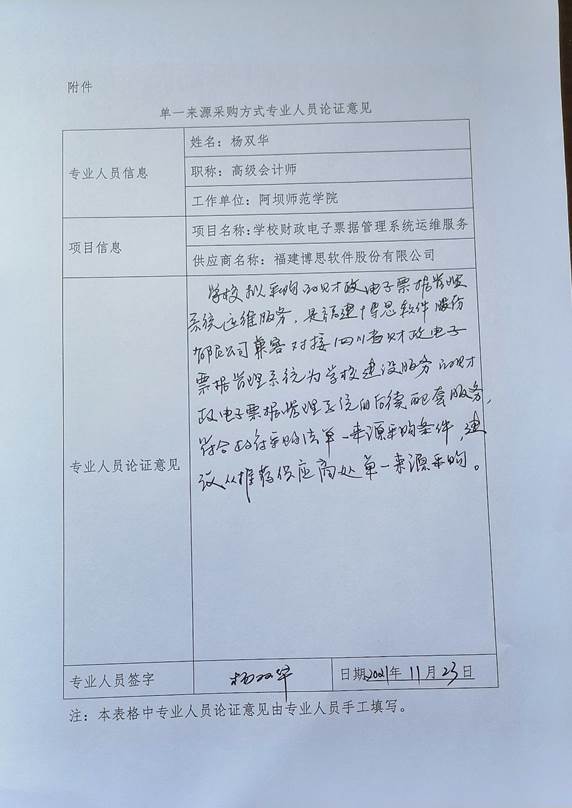 附件
单一来源采购方式专业人员论证意见
专业人员信息
姓名：杨双华
职称：高级会计师
工作单位：阿坝师范学院
项目信息
项目名称：学校财政电子票据管理系统运维服务
供应商名称：福建博思软件股份有限公司
专业人员论证意见
学校拟采购的财政电子票据管理
系统运维服务，是福建博思软件股份
有限公司兼容对接四川省财政电子
票据管理系统为学校建设服务的财
政电子票据管理系统的后续配套服务，
符合政府采购法单一来源采购条件，建
议从推荐供应商处单一来源采购。
专业人员签字
杨双华
日期2021年11月23日
注：本表格中专业人员论证意见由专业人员手工填写。